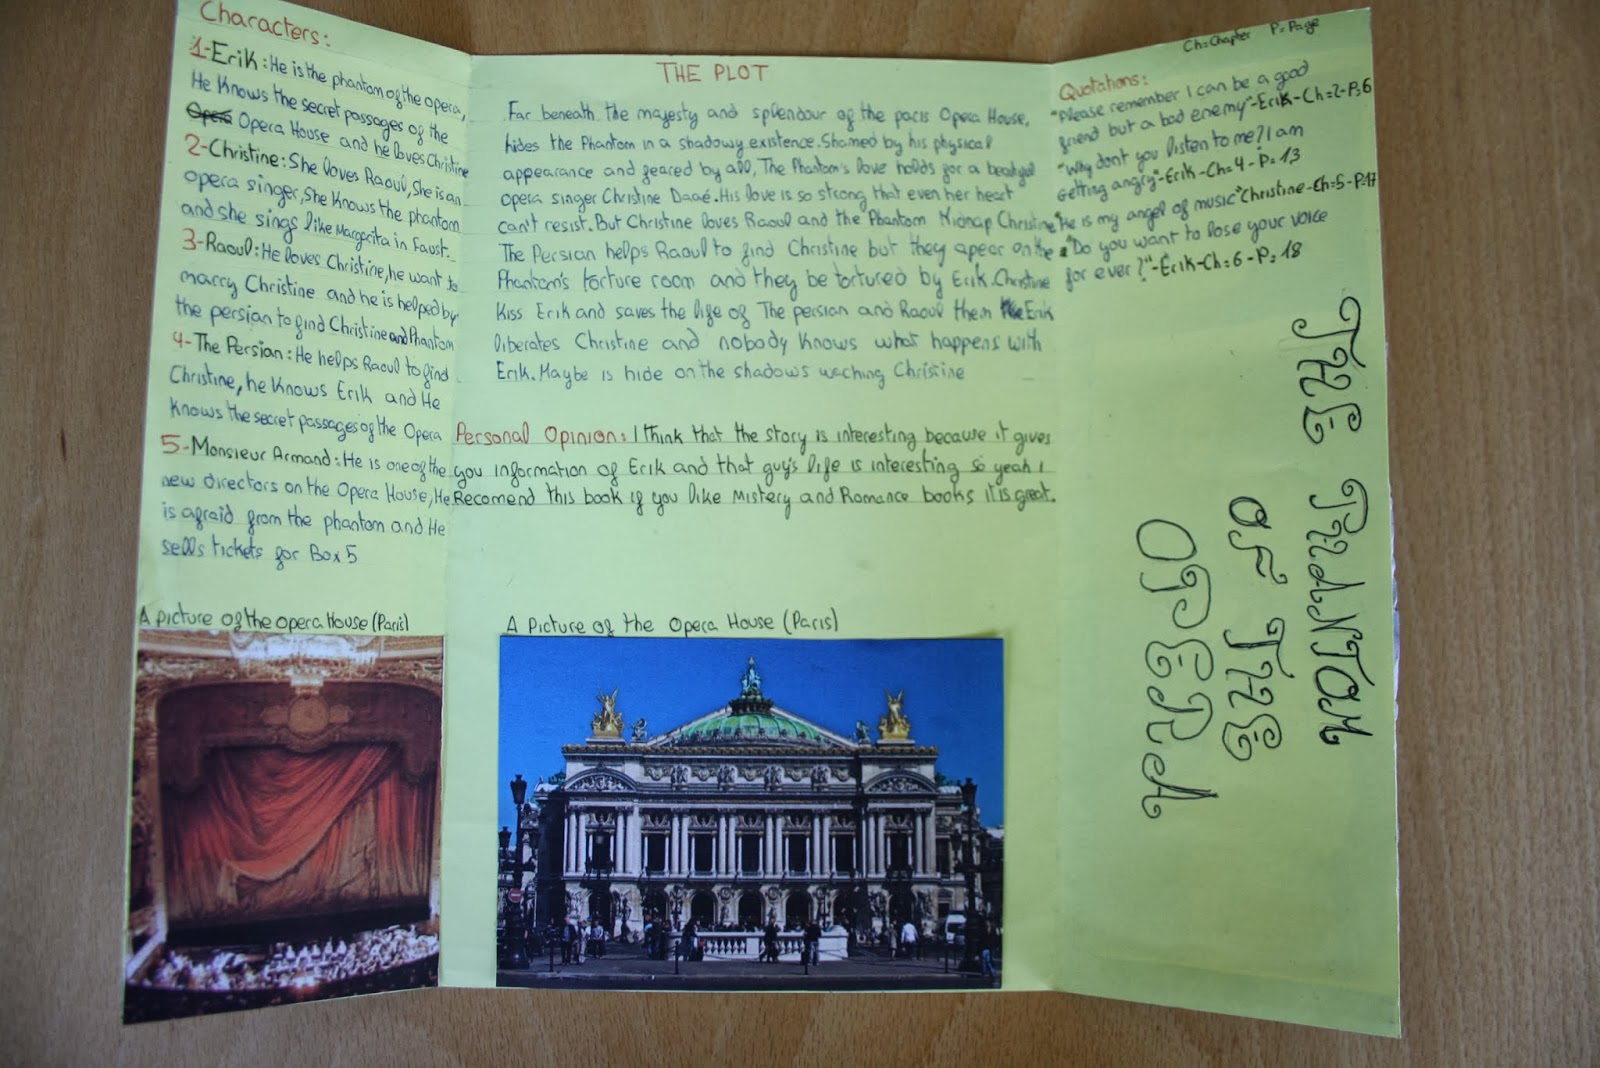 Characters:
1-Erik: He is the phantom of the opera,
He Knows the secret passages of the
Opera Opera House and he loves Christine
2-Christine: She loves Raoul, She is an
opera singer, She Knows the phantom
and she sings like Margarita in Faust.
3-Raoul: He loves Christine, he want to
marry Christine and he is helped by
the persian to find Christine and Phantom
4-The Persian: He helps Raoul to find
Christine, he Knows Erik and He
Knows the secret passages of the Opera
5-Monsieur Armand: He is one of the
new directors on the Opera House, He
is afraid from the phantom and He
sells tickets for Box 5
A picture of the opera House (Paris)
THE PLOT
Far beneath the majesty and splendour of the paris Opera House,
hides the Phantom in a shadowy existence. Shamed by his physical
appearance and feared by all, The Phantom's love holds for a beatyful
opera singer Christine Daaé. His love is so strong that even her heart
can't resist. But Christine loves Raoul and the Phantom Kidnap Christine
The Persian helps Raoul to find Christine but they apear on the
Phantom's torture room and they be tortured by Erik. Christine
Kiss Erik and saves the life of The persian and Raoul then Erik
liberates Christine and nobody Knows what happens with
Erik. Maybe is hide on the shadows waching Christine
Personal Opinion: I think that the story is interesting because it gives
you information of Erik and that guy's life is interesting so yeah i
Recomend this book if you like Mistery and Romance books it is great.
A Picture of the Opera House (Paris)
Ch=Chapter P=Page
Quotations:
"Please remember I can be a good
friend but a bad enemy"-Erik-Ch=2-P=6
"Why dont you listen to me? I am
Getting angry"-Erik-Ch=4-P=13
"He is my angel of music"Christine-Ch=5-P=17
"Do you want to lose your voice
for ever?"-Erik-Ch=6-P=18
THE PHANTOM
OF THE
OPERA